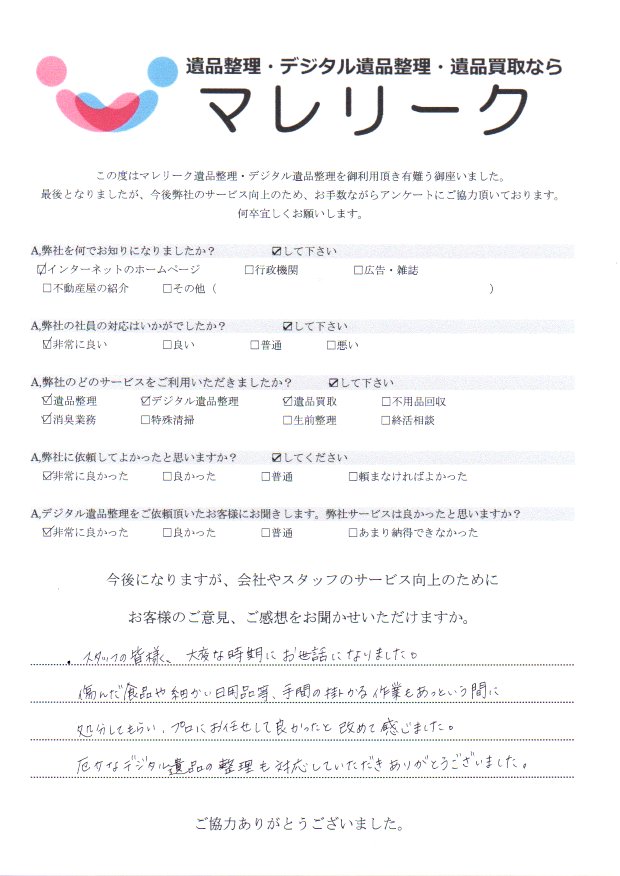 遺品整理・デジタル遺品整理・遺品買取なら
マレリーク
この度はマレリーク遺品整理・デジタル遺品整理を御利用頂き有難う御座いました。
最後となりましたが、今後弊社のサービス向上のため、お手数ながらアンケートにご協力頂いております。
何卒宜しくお願いします。
A,弊社を何でお知りになりましたか？ ☑して下さい
☑インターネットのホームページ □行政機関 □広告・雑誌
□不動産屋の紹介 □その他（ ）
A,弊社の社員の対応はいかがでしたか？ ☑して下さい
☑非常に良い □良い □普通 □悪い
A,弊社のどのサービスをご利用いただきましたか？ ☑して下さい
☑遺品整理 ☑デジタル遺品整理 ☑遺品買取 □不用品回収
☑消臭業務 □特殊清掃 □生前整理 □終活相談
A,弊社に依頼してよかったと思いますか？ ☑してください
☑非常に良かった □良かった □普通 □頼まなければよかった
A,デジタル遺品整理をご依頼頂いたお客様にお聞きします。弊社サービスは良かったと思いますか？
☑非常に良かった □良かった □普通 □あまり納得できなかった
今後になりますが、会社やスタッフのサービス向上のために
お客様のご意見、ご感想をお聞かせいただけますか。
スタッフの皆様、大変な時期にお世話になりました。
傷んだ食品や細かい日用品等、手間の掛かる作業もあっという間に
処分してもらい、プロにお任せして良かったと改めて感じました。
厄介なデジタル遺品の整理も対応していただきありがとうございました。
ご協力ありがとうございました。